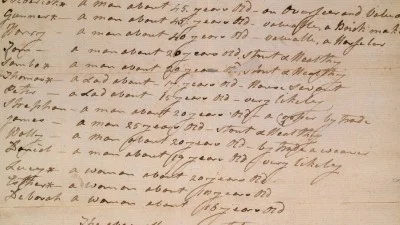 a man about 45 years old - an Overseer and Valua
Gunner - a man about 45 years old - valuable, a Brick mak
Henry - a man about 40 years old - valuable, a Hostler
a man about 26 years old, Stout & Healthy
Sambo - a man about years old, Stout & Healthy
Thomas - a Lad about years old - House Servant
Peter - a Lad about 15 years old - very likeley
Stephen - a man about 20 years old - a cooper by trade
James - a man 25 years old - Stout & Healthy
Wally a man about 20 years old - by trade a weaver
Daniel - a man about years old very likeley
Lucy - a woman about 20 years old
Esther - a woman about years old
Deborah a woman about years old
The